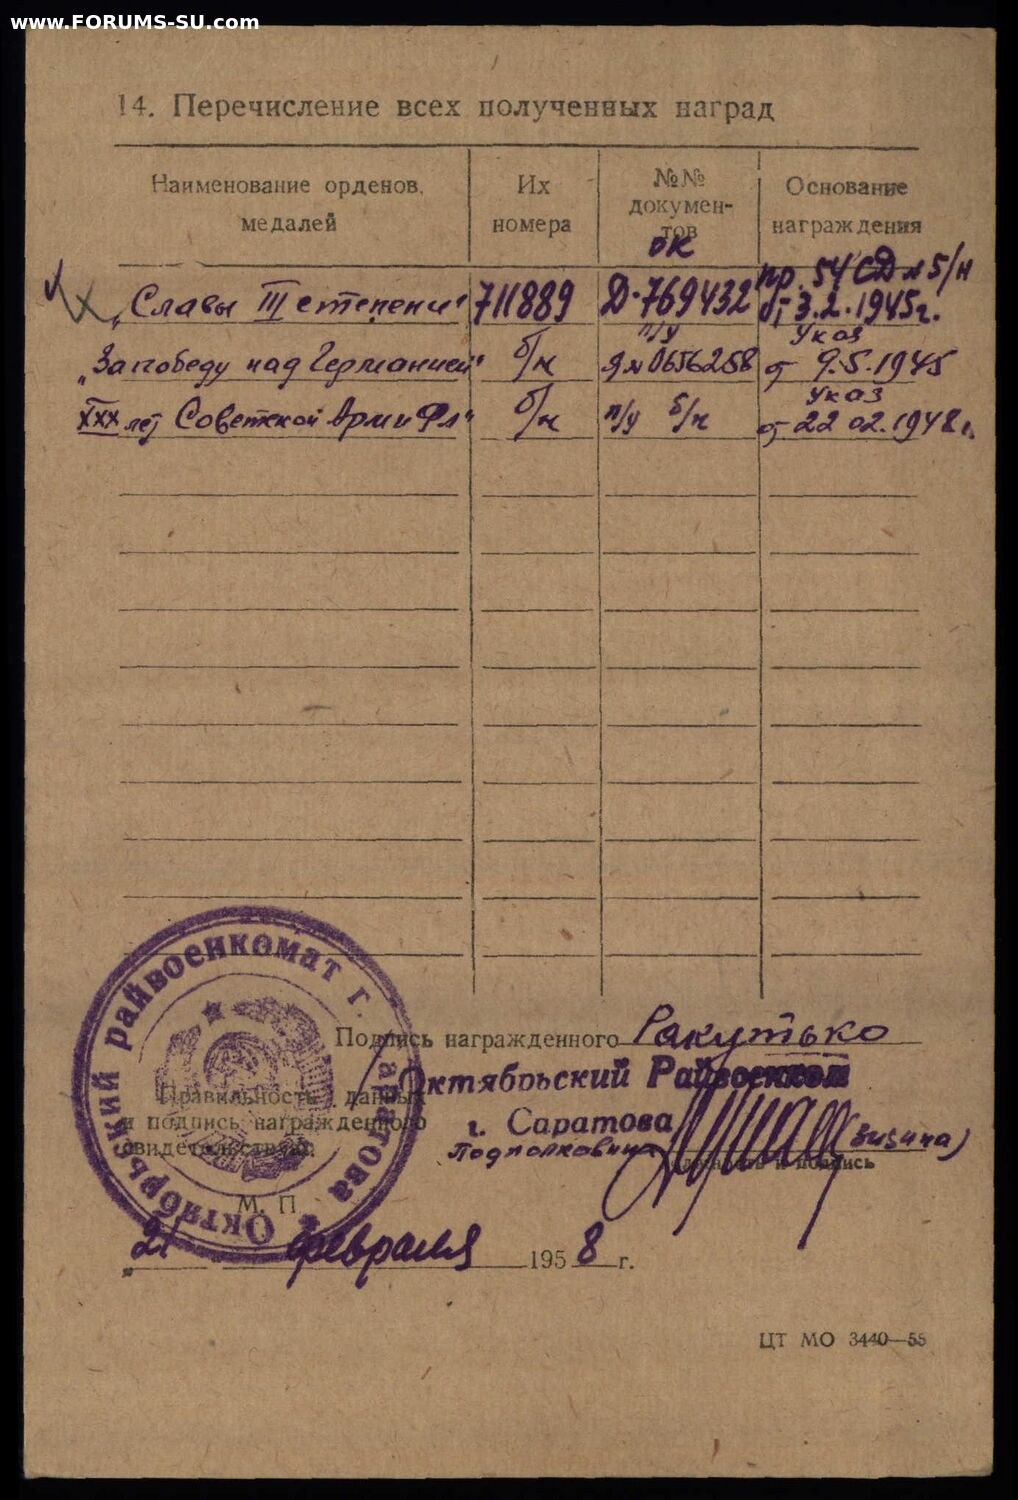 www.FORUMS-SU.com
14. Перечисление всех полученных наград
Наименование орденов, медалей
Их номера
№№ докумен-тов
Основание награждения
„Славы III степени" 711889 ок Д-769432 пр. 54 СД № б/н от 3.2.1945г.
„За победу над Германией" б/н п/у Я № 0656258 Указ от 9.5.1945
XXX лет Советской Арм и Фл" б/н п/у б/н Указ от 22 02.1948 г.
Подпись награжденного Ракутько
Октябрьский Райвоенком
г. Саратова
Правильность данных
и подпись награжденного
свидетельствую.
Подполковник
должность и подпись
М. П.
21 февраля 1958 г.
Октябрьский райвоенкомат г. Саратова
ЦТ МО 3440—55